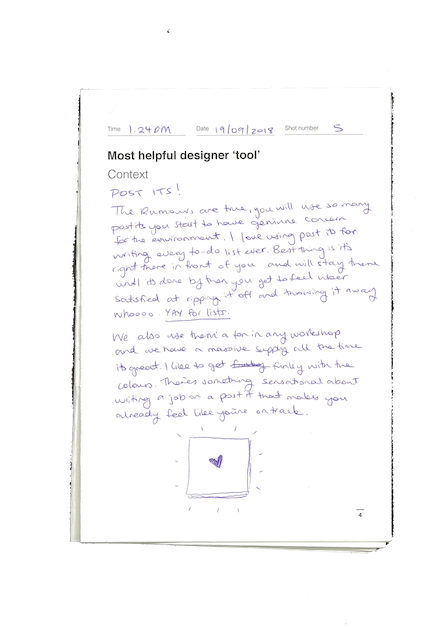 Time 1.24PM Date 19/09/2018 Shot number 5
Most helpful designer 'tool'
Context
POST ITS!
The Rumours are true, you will use so many
post its you start to have genuine concern
for the environment. I love using post its for
writing every to-do list ever. Best thing is its
right there in front of you and will stay there
until its done by then you get to feel uber
satisfied at ripping it off and throwing it away
whoooo. YAY for lists.
We also use them a ton in any workshop
and we have a massive supply all the time
its great. I like to get funky with the
colours. Theres something sensational about
writing a job on a post it that makes you
already feel like you're on track.
4